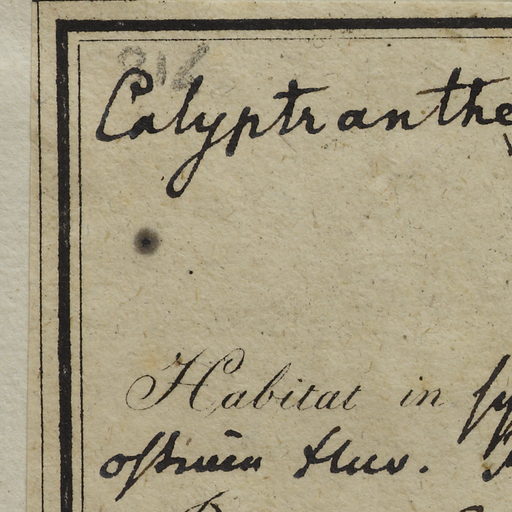 Calyptranthe
Habitat in sy
ostium fluv.